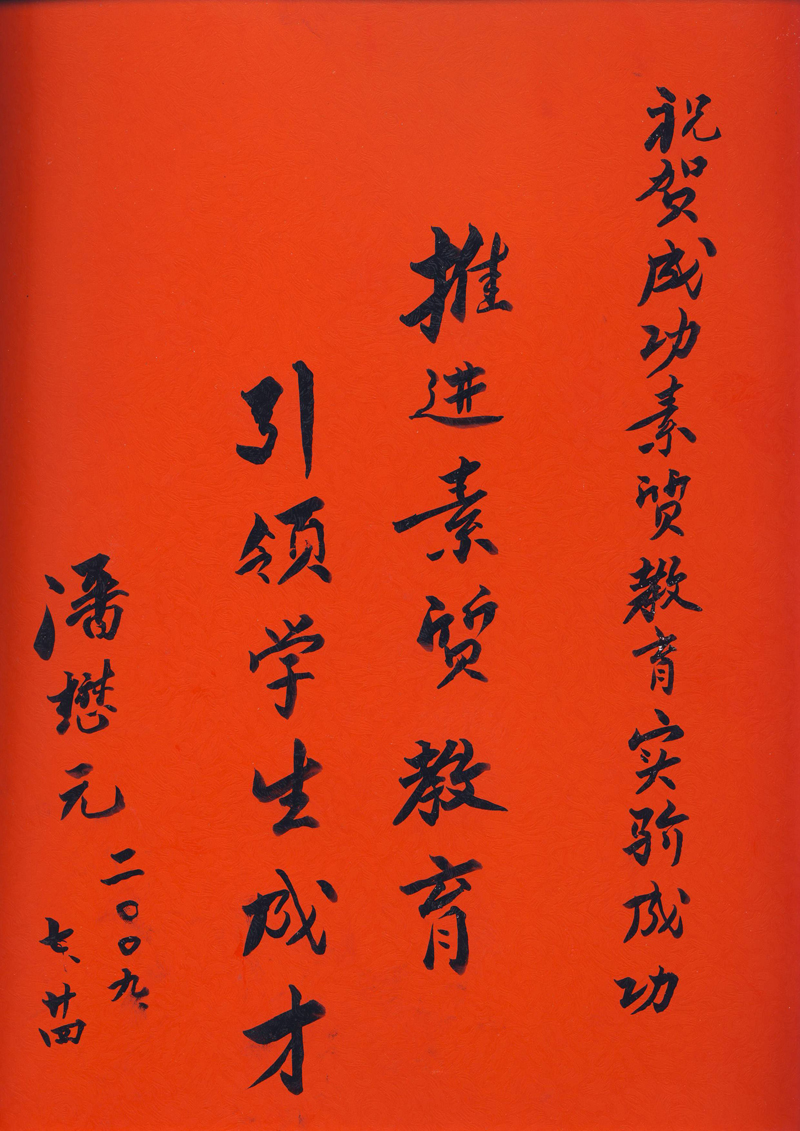 祝贺成功素质教育实验成功
推进素质教育
引领学生成才
潘懋元
二〇〇九、
七、廿四